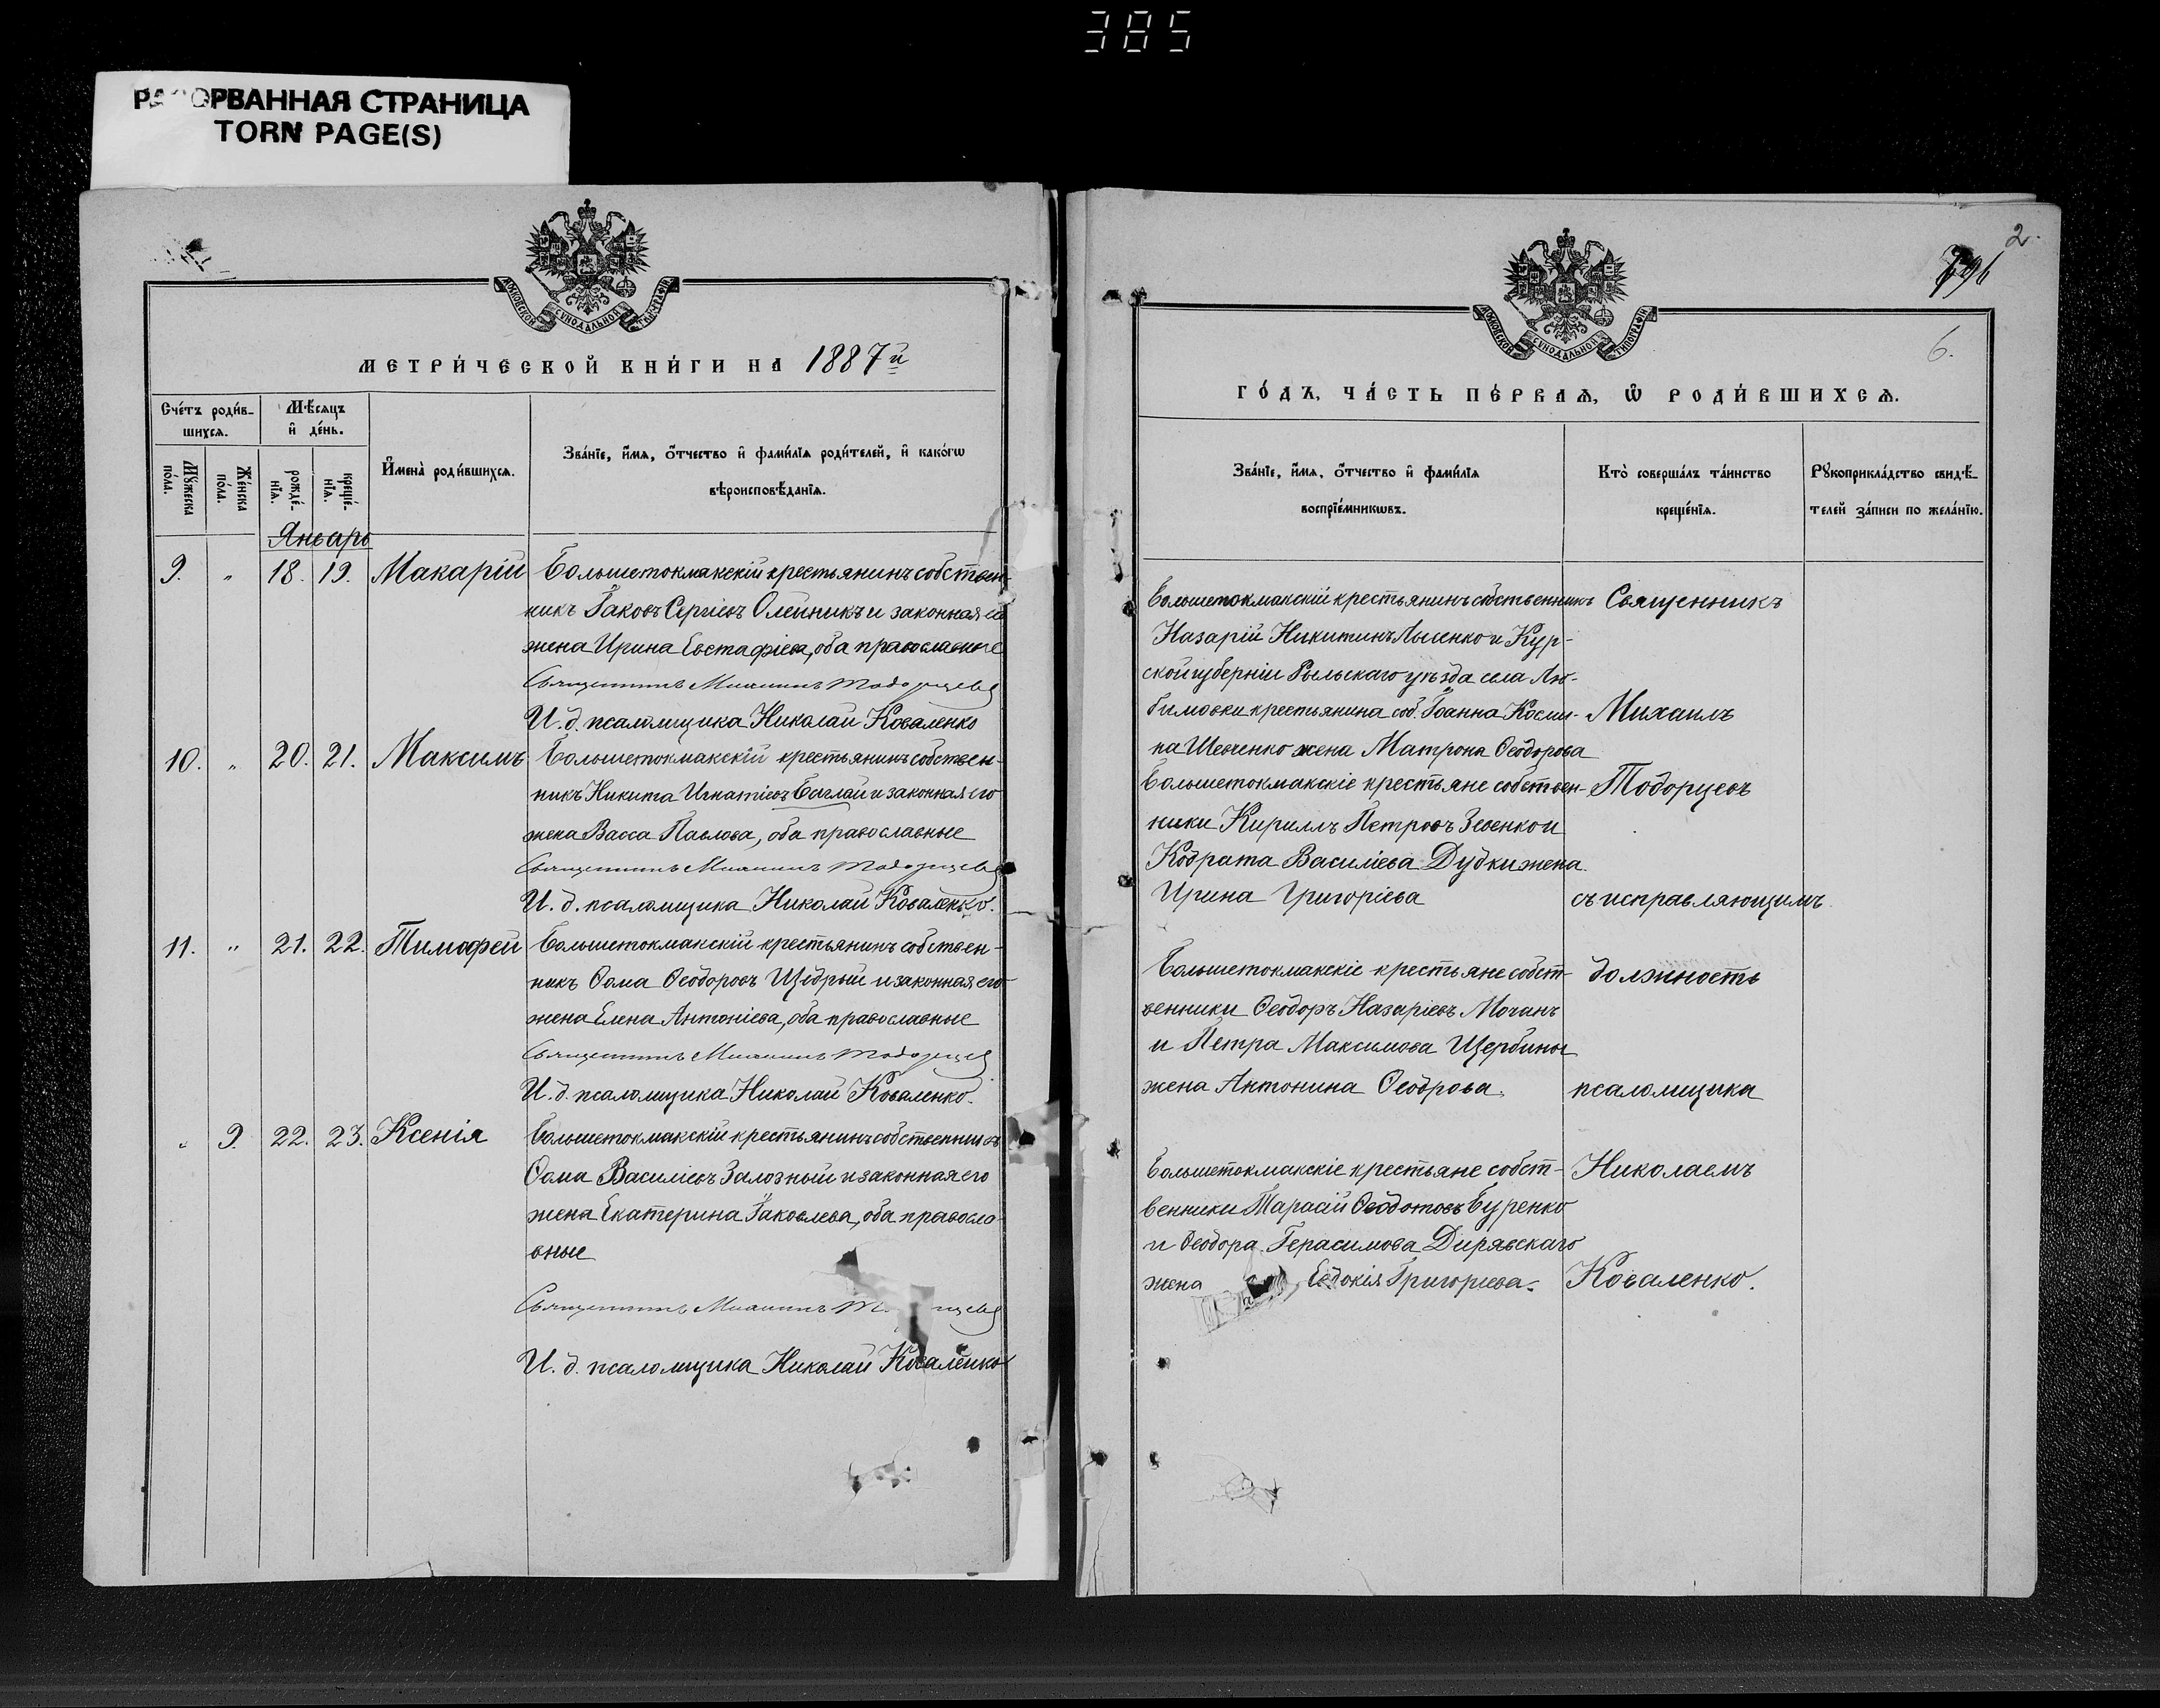 385
РАЗОРВАННАЯ СТРАНИЦА
TORN PAGE(S)
МОСКОВСКОЙ СУНОДАЛЬНОЙ ТИПОГРАФІИ
МЕТРИ́ЧЕСКОЙ КНИ́ГИ НА 1887й
Сче́тъ роди́в-
шихсѧ.
Мѣ́сѧцъ
и҆ де́нь.
И҆мена̀ роди́вшихсѧ.
Зва́нїе, и҆́мѧ, ѻ҆́тчество и҆ фами́лїѧ роди́телей, и҆ како́гѡ
вѣроисповѣ́данїѧ.
Мꙋ́жеска
по́ла.
Же́нска
по́ла.
рожде́-
нїѧ.
креще́-
нїѧ.
Январь
9. „ 18. 19. Макарій Большетокмакскій крестьянинъ собствен-
никъ Іаковъ Сергіевъ Олейникъ и законная его
жена Ирина Евстафіева, оба православные
Священникъ Михаилъ Тодорцевъ
И. д. псаломщика Николай Коваленко
10. „ 20. 21. Максимъ Большетокмакскій крестьянинъ собствен-
никъ Никита Игнатіевъ Баглай и законная его
жена Васса Павлова, оба православные
Священникъ Михаилъ Тодорцевъ
И. д. псаломщика Николай Коваленко.
11. „ 21. 22. Тимофей Большетокмакскій крестьянинъ собствен-
никъ Ѳома Ѳеодоровъ Щедрый и законная его
жена Елена Антоніева, оба православные
Священникъ Михаилъ Тодорцевъ
И. д. псаломщика Николай Коваленко.
„ 9. 22. 23. Ксенія Большетокмакскій крестьянинъ собственникъ
Ѳома Василіевъ Залозный и законная его
жена Екатерина Іаковлева, оба правосла-
вные
Священникъ Михаилъ Т цевъ
И. д. псаломщика Николай Коваленко
2.
6.
МОСКОВСКОЙ СУНОДАЛЬНОЙ ТИПОГРАФІИ
ГО́ДЪ, ЧА́СТЬ ПЕ́РВАѦ, Ѡ҆ РОДИ́ВШИХСѦ.
Зва́нїе, и҆́мѧ, ѻ҆́тчество и҆ фами́лїѧ
воспрїе́мникѡвъ.
Кто̀ соверша́лъ та́инство
креще́нїѧ.
Рꙋкоприкла́дство свидѣ́-
телей за́писи по жела́нїю.
Большетокмакскій крестьянинъ собственникъ Священникъ
Назарій Никитинъ Лысенко и Кур-
ской губерніи Рыльскаго уѣзда села Ан-
бимовки крестьянина соб. Іоанна Косми- Михаилъ
на Шевченко жена Матрона Ѳеодорова
Большетокмакскіе крестьяне собствен- Тодорцевъ
ники Кириллъ Петровъ Зевенко и
Кодрата Василіева Дудки жена
Ирина Григоріева съ исправляющимъ
Большетокмакскіе крестьяне собст- должность
венники Ѳеодоръ Назаріевъ Мочанъ
и Петра Максимова Щербины
жена Антонина Ѳеодрова. псаломщика
Большетокмакскіе крестьяне собст- Николаемъ
венники Тарасій Ѳеодотовъ Буренко
и Ѳеодора Герасимова Дирявскаго
жена Евдокія Григориева. Коваленко.